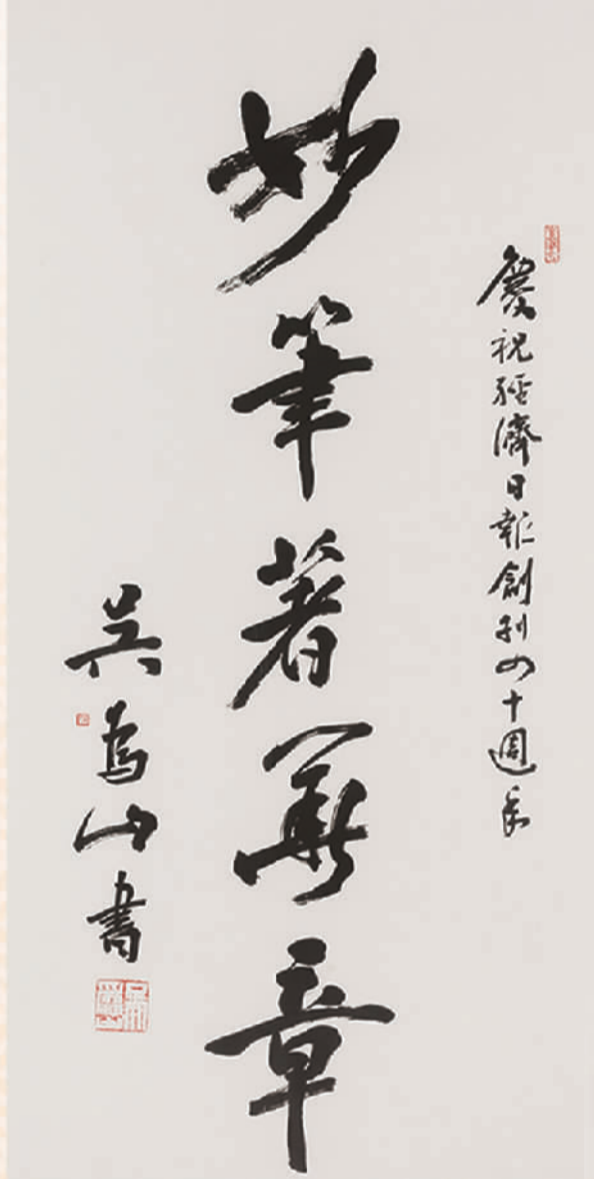 慶祝經濟日報創刊四十週年
妙筆著華章
吳為山書